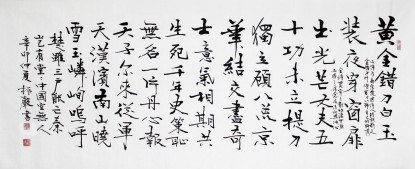 黃金錯刀白玉
裝夜穿窗扉
出光芒丈夫五
十功未立提刀
獨立顧八荒京
華結交盡奇
士意氣相期共
生死千年史策恥
無名一片丹心報
天子尔來從軍
天漢濱南山曉
雪玉嶙峋嗚呼
楚雖三戶能亡秦
豈有堂〻中國空無人
辛卯仲夏 書